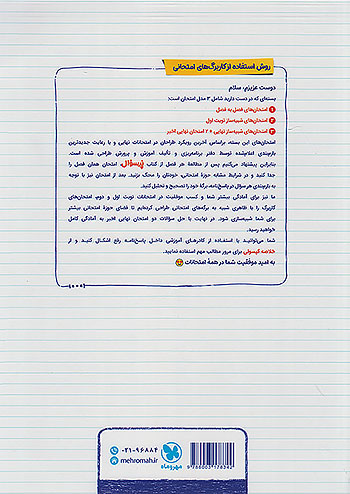 روش استفاده از کاربرگ‌های امتحانی
دوست عزیزم، سلام
بسته‌ای که در دست دارید شامل ۳ مدل امتحان است:
۱ امتحان‌های فصل به فصل
۲ امتحان‌های شبیه‌ساز نوبت اول
۳ امتحان‌های شبیه‌ساز نهایی + ۲ امتحان نهایی اخیر
امتحان‌های این بسته، براساس آخرین رویکرد طراحان در امتحانات نهایی و با رعایت جدیدترین
بارم‌بندی اعلام‌شده توسط دفتر برنامه‌ریزی و تألیف آموزش و پرورش طراحی شده است.
بنابراین پیشنهاد می‌کنیم پس از مطالعهٔ هر فصل از کتاب پُرسؤال، امتحان همان فصل را
جدا کنید و در شرایط مشابه حوزهٔ امتحانی، خودتان را محک بزنید. بعد از امتحان نیز با توجه
به بارم‌بندی هر سؤال در پاسخ‌نامه، برگهٔ خود را تصحیح و تحلیل کنید.
ما نیز برای آمادگی بیشتر شما و کسب موفقیت در امتحانات نوبت اول و دوم، امتحان‌های
کاربرگ را با ظاهری شبیه به برگه‌های امتحانی طراحی کرده‌ایم تا فضای حوزهٔ امتحانی بیشتر
برای شما شبیه‌سازی شود. در نهایت با حل سؤالات دو امتحان نهایی اخیر به آمادگی کامل
خواهید رسید.
شما می‌توانید با استفاده از کادرهای آموزشی داخل پاسخ‌نامه رفع اشکال کنید و از
خلاصه کپسولی برای مرور مطالب مهم استفاده نمایید.
به امید موفقیت شما در همهٔ امتحانات
۰۲۱-۹۶۸۸۴
mehromah.ir
مهروماه
9786003178342